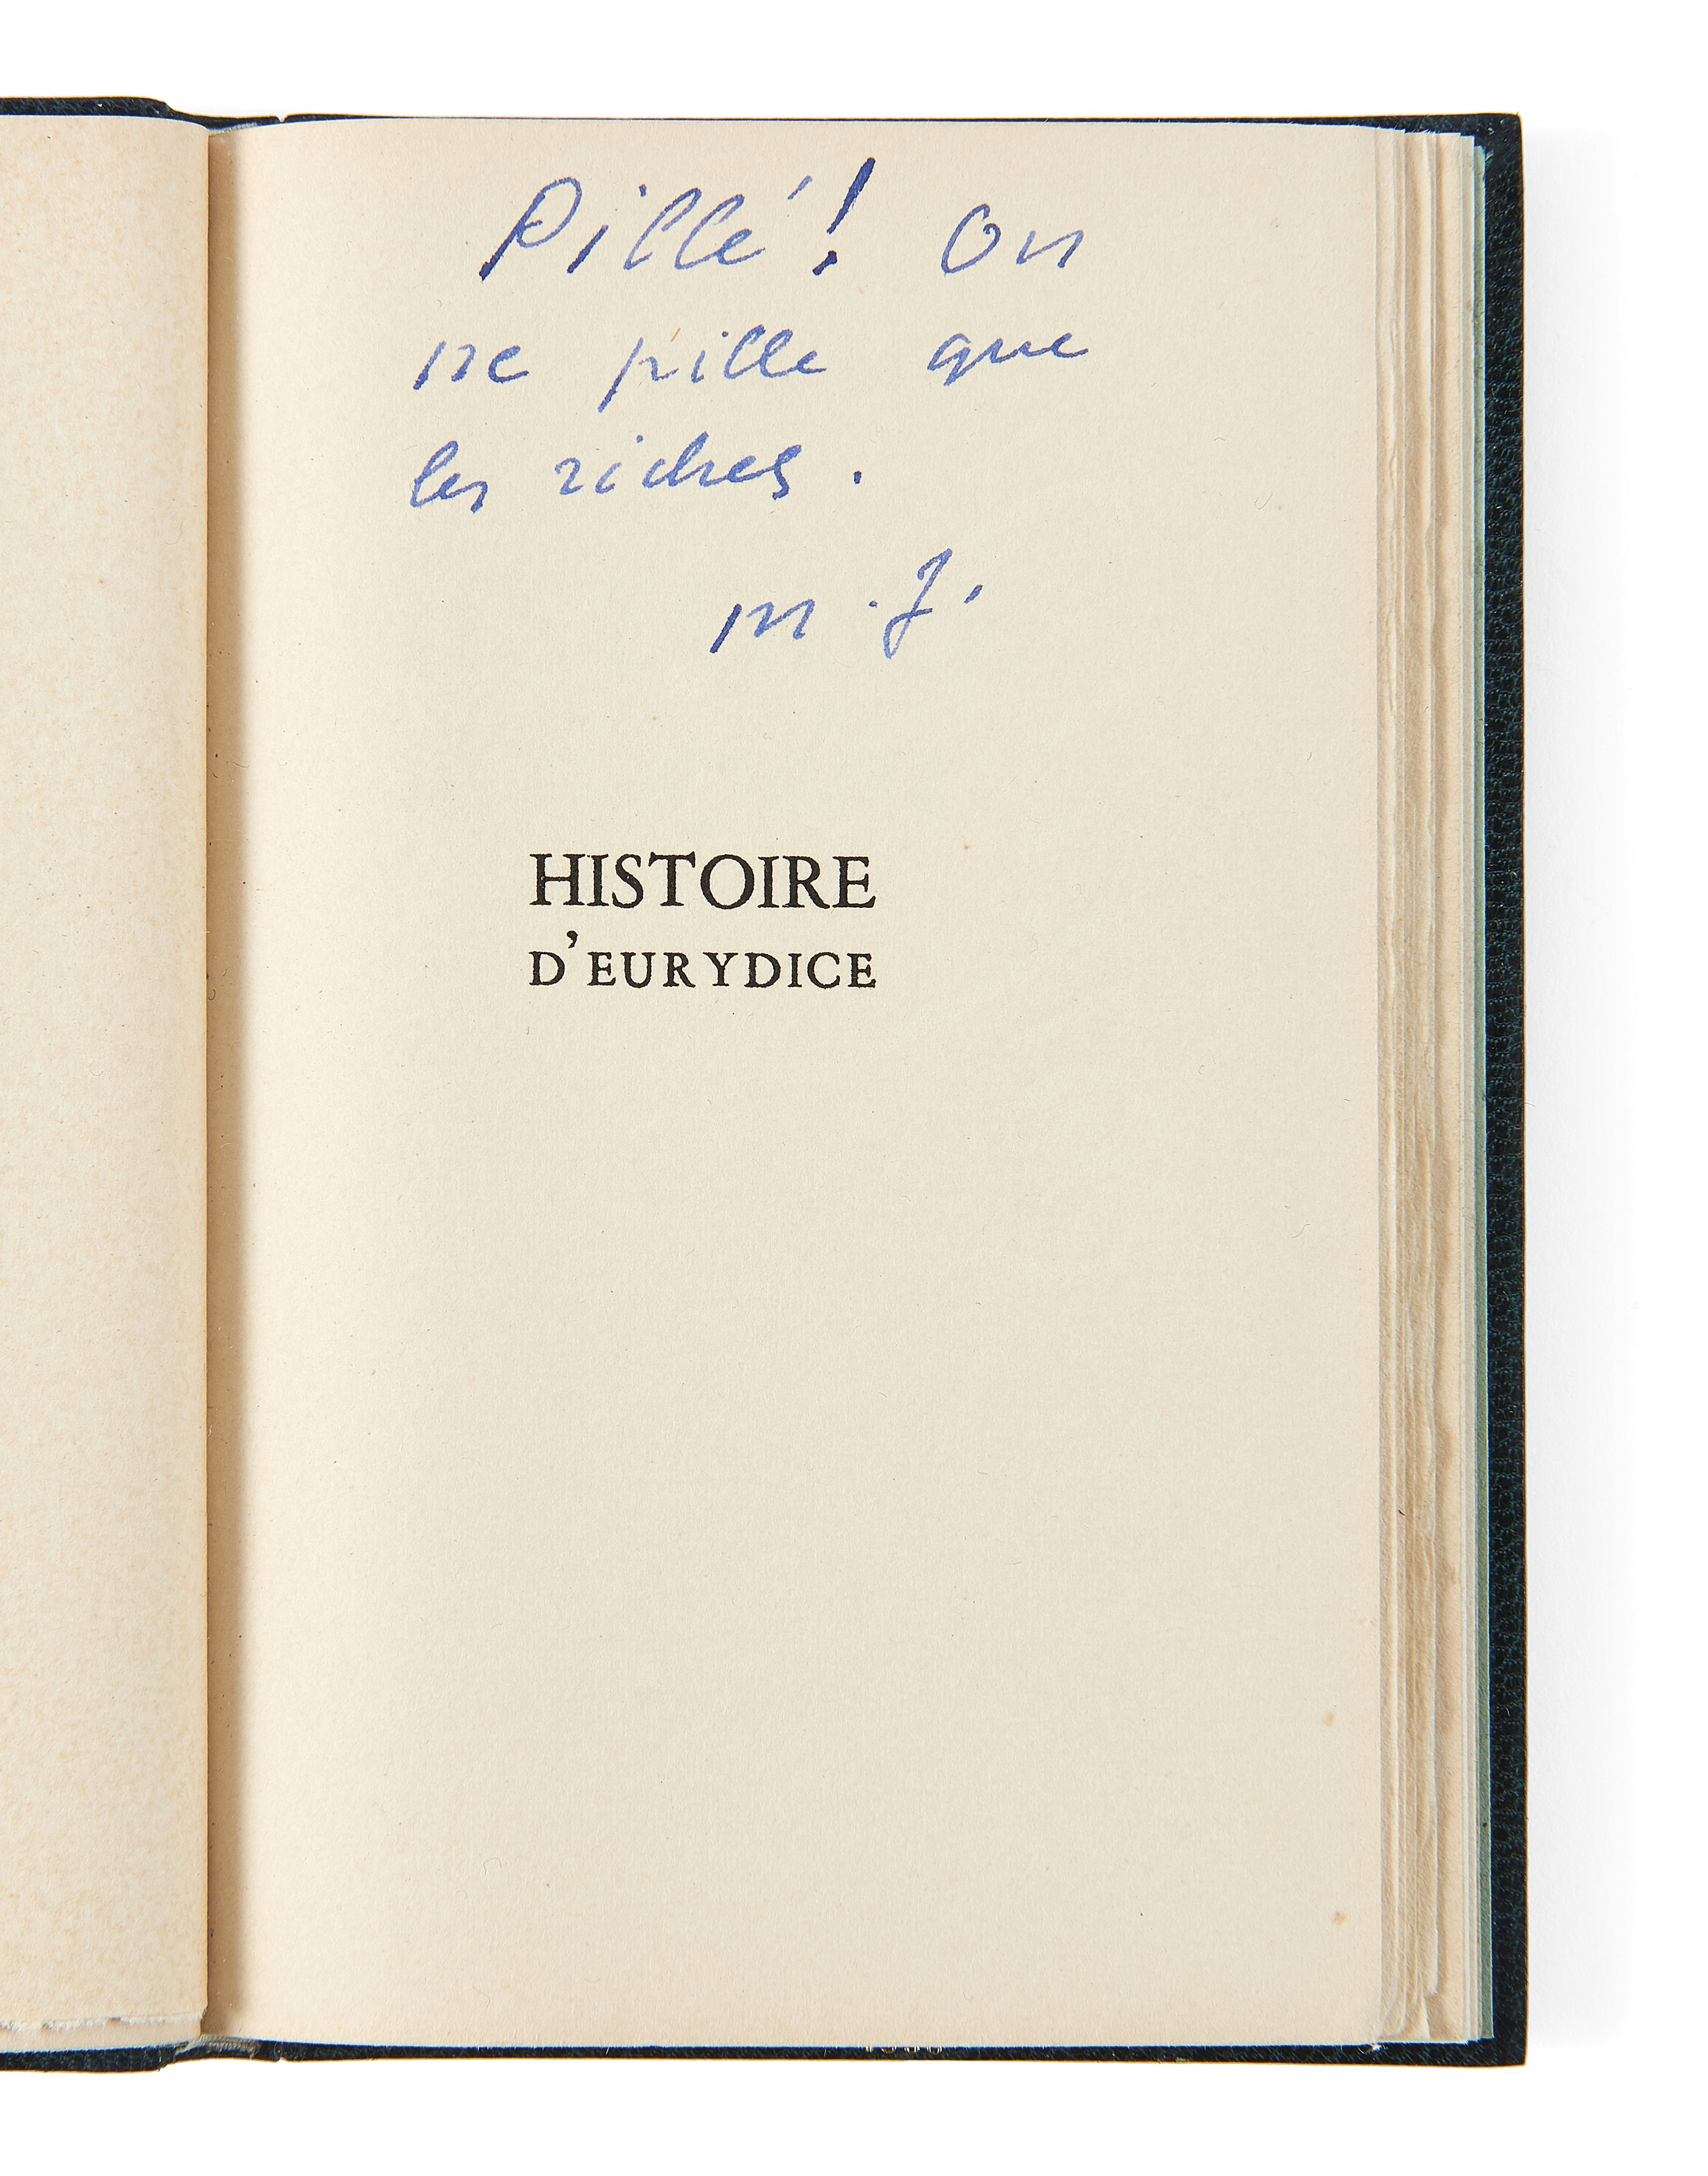 Pillé! On
ne pille que
les riches.
M.J.
HISTOIRE
D'EURYDICE